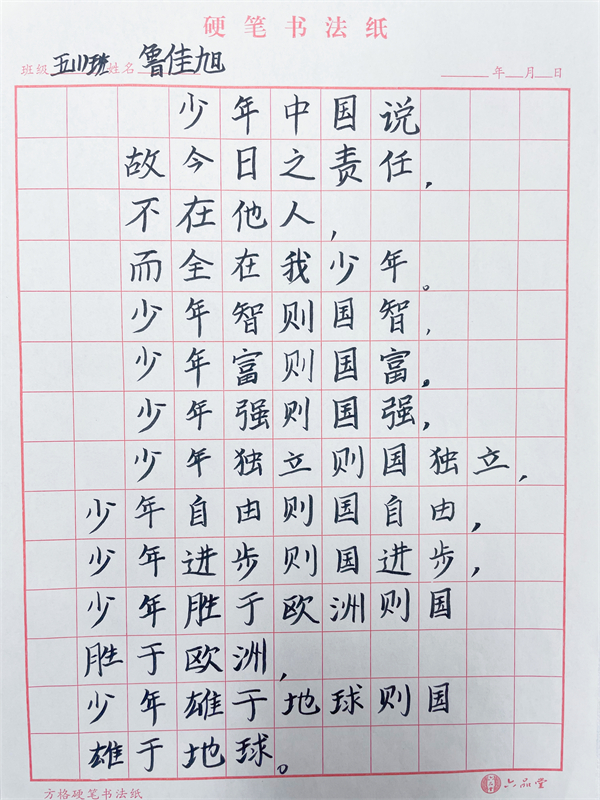 硬笔书法纸
班级 五(1)班 姓名 鲁佳旭 年 月 日
少年中国说
故今日之责任，
不在他人，
而全在我少年。
少年智则国智，
少年富则国富。
少年强则国强，
少年独立则国独立，
少年自由则国自由，
少年进步则国进步，
少年胜于欧洲则国
胜于欧洲，
少年雄于地球则国
雄于地球。
方格硬笔书法纸 六品堂